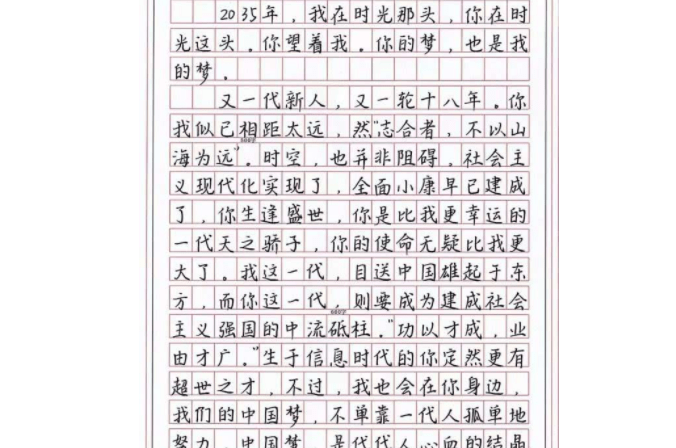 2035年，我在时光那头，你在时
光这头。你望着我。你的梦，也是我
的梦。
又一代新人，又一轮十八年。你
我似已相距太远，然“志合者，不以山
海为远”。时空，也并非阻碍。社会主
义现代化实现了，全面小康早已建成
了，你生逢盛世，你是比我更幸运的
一代天之骄子，你的使命无疑比我更
大了。我这一代，目送中国雄起于东
方，而你这一代，则要成为建成社会
主义强国的中流砥柱。“功以才成，业
由才广。”生于信息时代的你定然更有
超世之才，不过，我也会在你身边，
我们的中国梦，不单靠一代人孤单地
努力，中国梦，是代代人心血的结晶